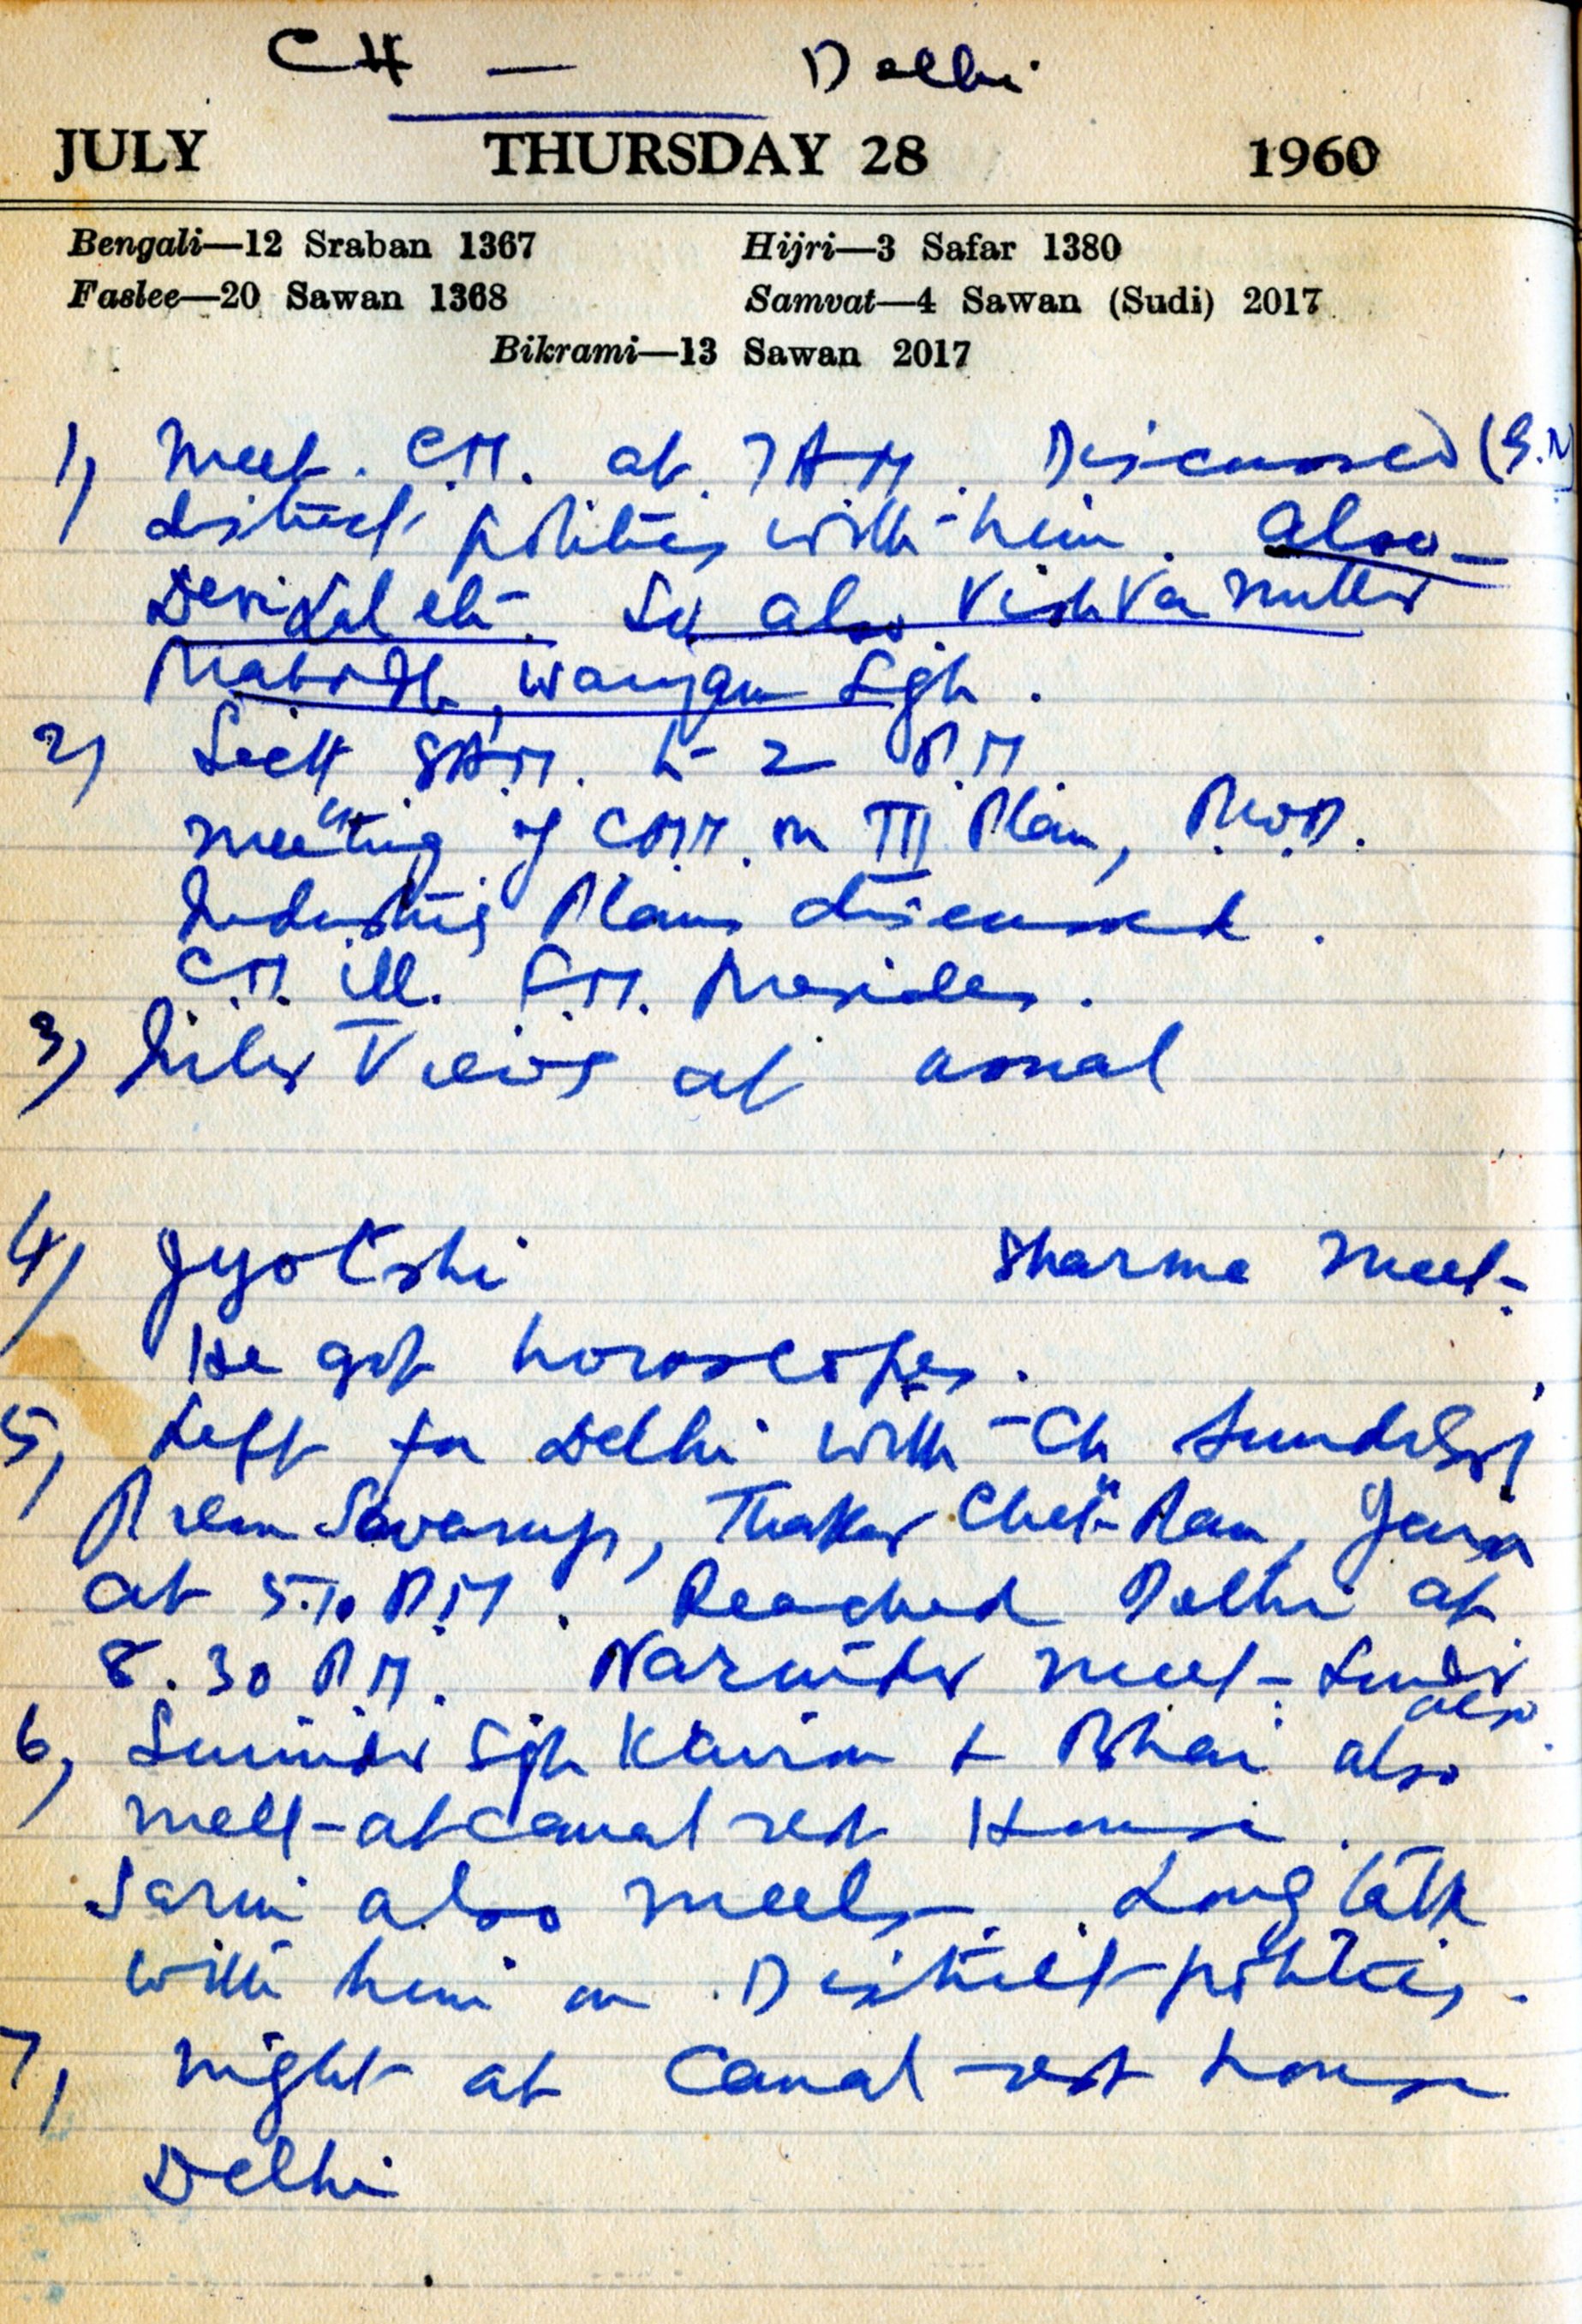 CH — Delhi
JULY THURSDAY 28 1960
Bengali—12 Sraban 1367 Hijri—3 Safar 1380
Faslee—20 Sawan 1368 Samvat—4 Sawan (Sudi) 2017
Bikrami—13 Sawan 2017
1) Meet. C.M. at 7 A.M. Discussed
district politics with him. also
Devi Lal etc. So also Vishva
Singh.
2) Sectt 8 A.M. to 2 P.M.
meeting of on III Plan, P.W.D.
Industries Plans discussed.
C.M. ill. F.M. Presides.
3) Inter Views at usual
4) Jyotshi Sharma meet.
He got horoscopes.
5, Left for Delhi with Ch
Prem Swarup, Thaker Chet Ram, Jain
at 5.10 P.M. Reached Delhi at
8.30 P.M. Narinder meet.
also
6, Surinder Sgh Kairon + Bhai also
meet at canal rest House.
also meets. Long talk
with him on District politics.
7, night at Canal rest house
Delhi